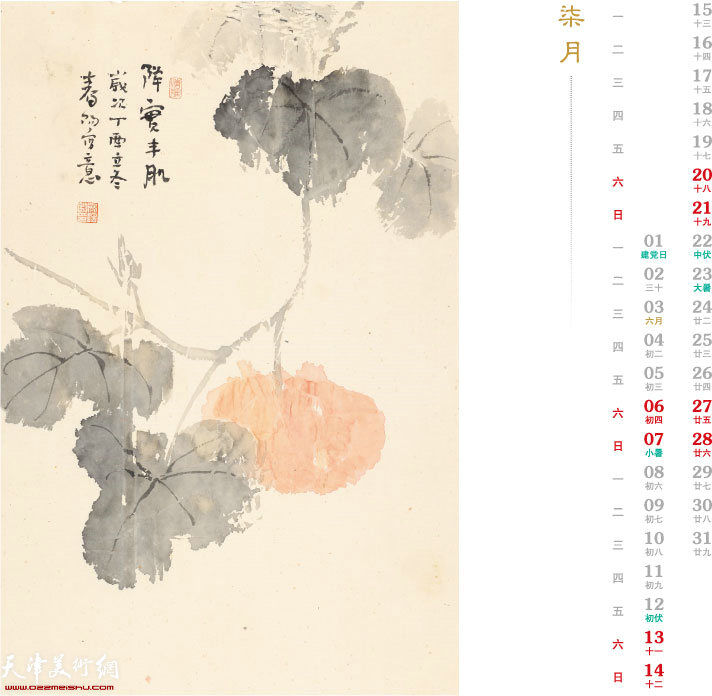 實丰肌
歲次丁酉立冬
寫意
柒月
一
二
三
四
五
六
日
一
二
三
四
五
六
日
一
二
三
四
五
六
日
01
建党日
02
三十
03
六月
04
初二
05
初三
06
初四
07
小暑
08
初六
09
初七
10
初八
11
初九
12
初伏
13
十一
14
十二
15
十三
16
十四
17
十五
18
十六
19
十七
20
十八
21
十九
22
中伏
23
大暑
24
廿二
25
廿三
26
廿四
27
廿五
28
廿六
29
廿七
30
廿八
31
廿九
天津美術網
www.022meishu.com